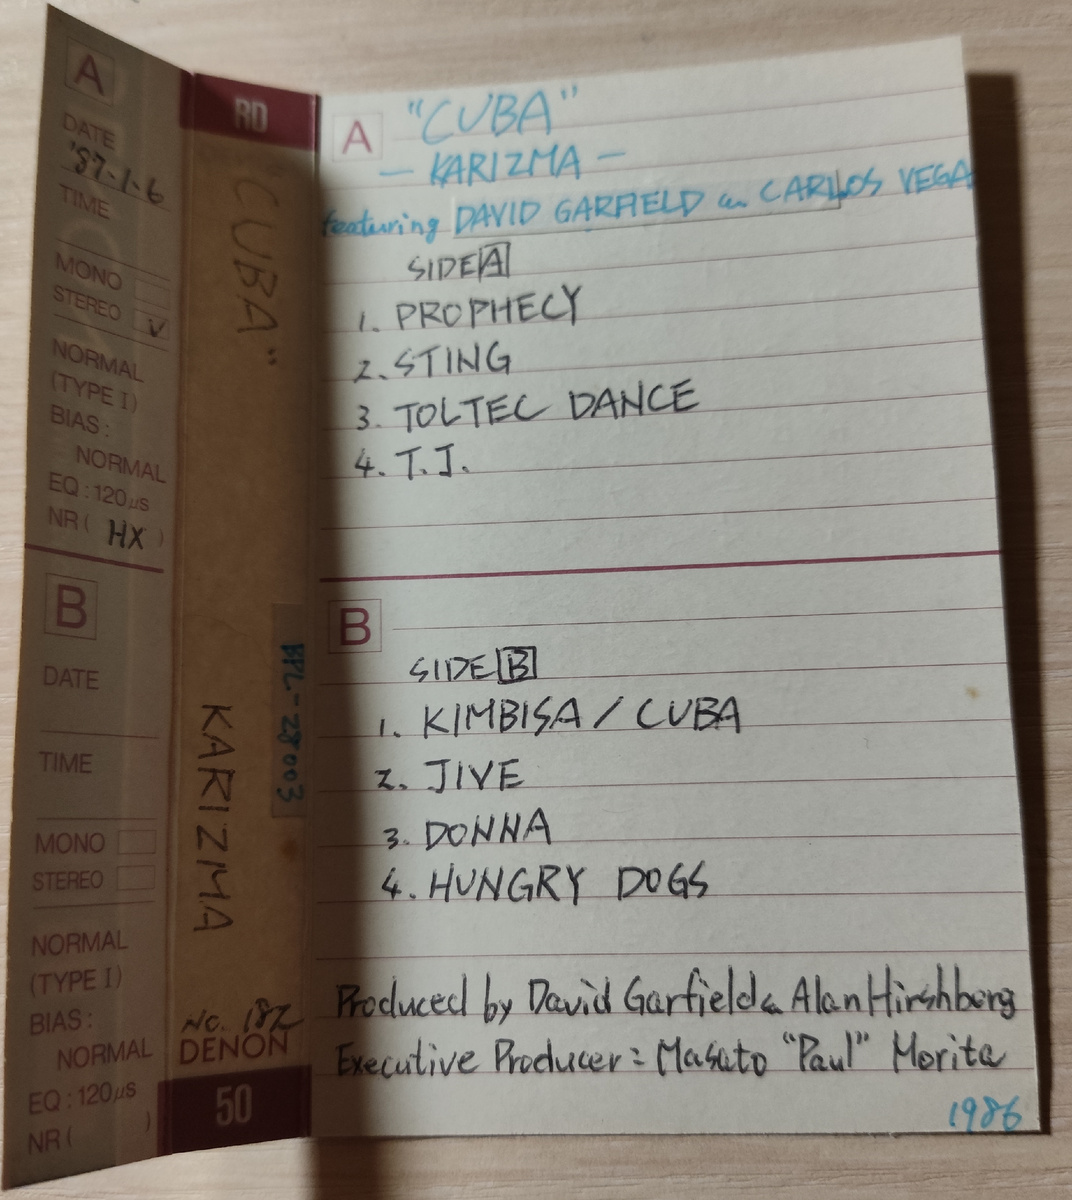 A
DATE
'87.1.6
TIME
MONO
STEREO V
NORMAL
(TYPE I)
BIAS:
NORMAL
EQ:120μs
NR( HX )
B
DATE
TIME
MONO
STEREO
NORMAL
(TYPE I)
BIAS:
NORMAL
EQ:120μs
NR( )
RD
"CUBA"
KARIZMA
BPL-28003
No. 182
DENON
50
A
"CUBA"
— KARIZMA —
featuring DAVID GARFIELD & CARLOS VEGA
SIDE A
1. PROPHECY
2. STING
3. TOLTEC DANCE
4. T.J.
B
SIDE B
1. KIMBISA / CUBA
2. JIVE
3. DONNA
4. HUNGRY DOGS
Produced by David Garfield & Alan Hirshberg
Executive Producer: Masato "Paul" Morita
1986